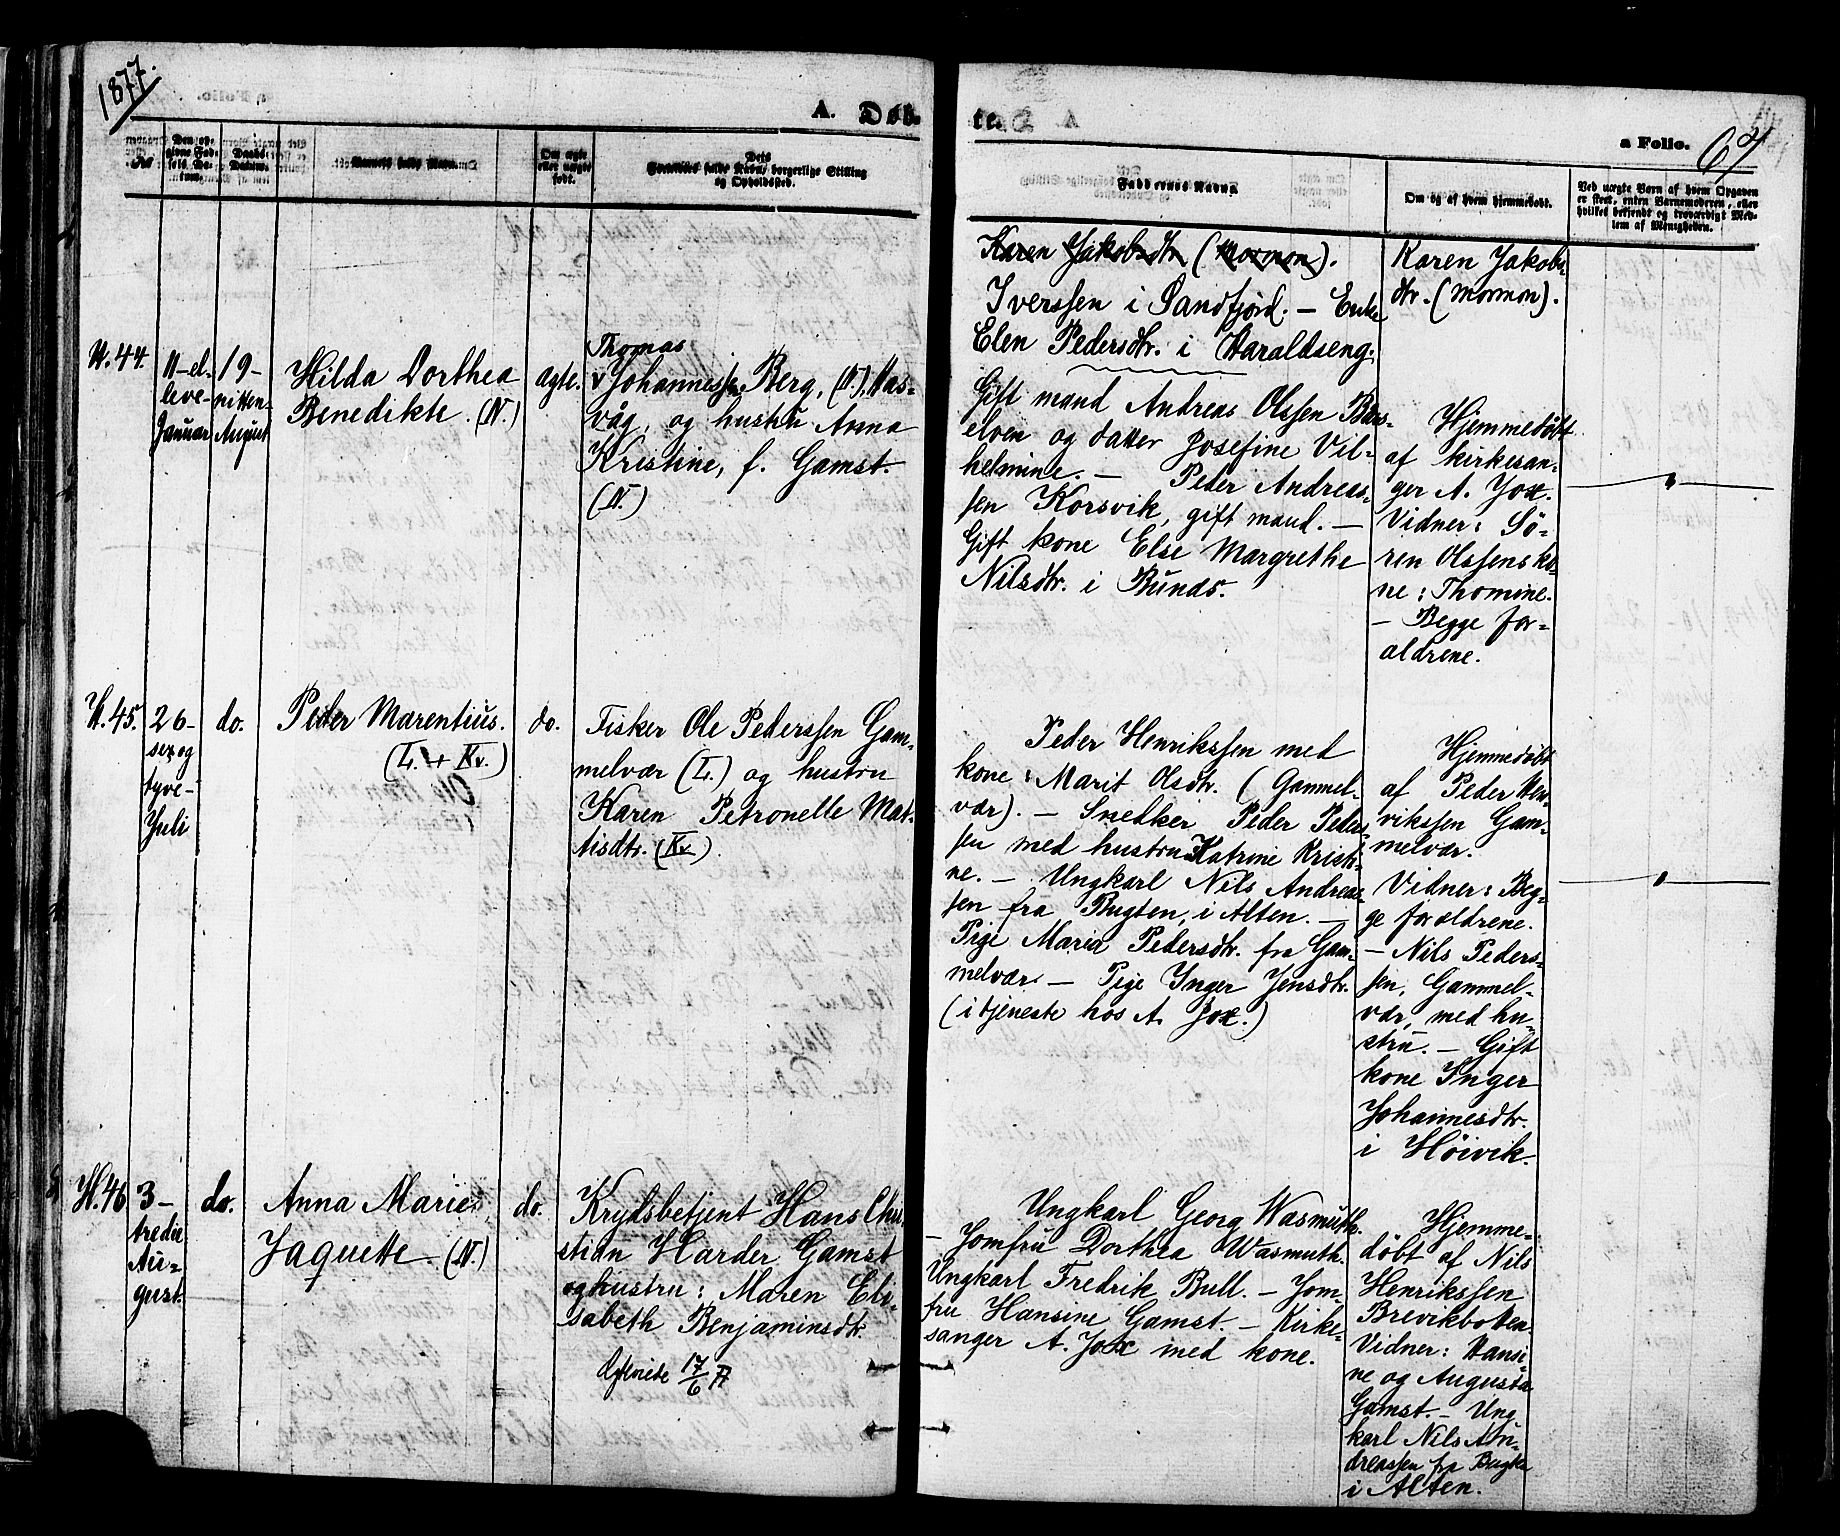 1877.
A. Døb-
te.
a Folio. 67
No
Den opgivne Fødsels Datum.
Daabs-Datum.
Barnets fulde Navn.
Om ægte eller uægte født.
Forældres fulde Navn, borgerlige Stilling og Opholdssted.
Faddernes Navne.
Om og af hvem hjemmedøbt.
Ved uægte Børn af hvem Opgaven er skeet, enten Barnemoderen, eller hvilket bekjendt og troværdigt Medlem af Menigheden.
Karen Jakobsdtr (Mormon).
Iverssen i Sandfjord. — Enke
Elen Pedersdtr. i Haraldseng.
Karen Jakobs-
dtr. (Mormon).
H.44.
11-el-
leve-
Januar
19-
nitten-
August
Hilda Dorthea
Benedikte. (N.)
ægte.
Thomas
Johannessen Berg, (N.), Has-
våg, og hustru Anna
Kristine, f. Gamst.
(N.)
Gift mand Andreas Olssen Bars-
elven og datter Josefine Vil-
helmine. — Peder Andreas-
sen Korsvik, gift mand. —
Gift kone Else Margrethe
Nilsdtr. i Bunds.
Hjemmedøbt
af kirkesan-
ger A. Fox.
Vidner: Sö-
ren Olssens ko-
ne: Thomine.
— Begge for-
ældrene.
H.45.
26-
sex og
tyve-
Juli
do.
Peder Marentius.
(L. + Kv.)
do.
Fisker Ole Pederssen Gam-
melvær (L.) og hustru
Karen Petronelle Mat-
tisdtr. (Kv.)
Peder Henrikssen med
kone: Marit Olsdtr. (Gammel-
vær). — Snedker Peder Peders-
sen med hustru Katrine Kristi-
ne. — Ungkarl Nils Andreas-
sen fra Bugten, i Alten. —
Pige Maria Pedersdtr. fra Gam-
melvær — Pige Inger Jensdtr.
(i tjeneste hos A. Fox.)
Hjemmedøbt
af Peder Hen-
rikssen Gam-
melvær.
Vidner: Beg-
ge forældrene.
— Nils Peders-
sen, Gammel-
vær, med hu-
stru. — Gift
kone Inger
Johannesdtr.
i Höivik.
H.46
3-
tredie
Au-
gust.
do.
Anna Marie
Jaquette. (N.)
do.
Krydsbetjent Hans Chri-
stian Harder Gamst
og hustru: Maren Eli-
sabeth Benjaminsdtr.
17/6
Ungkarl Georg Wasmuth.
— Jomfru Dorthea Wasmuth.
Ungkarl Fredrik Bull. — Jom-
fru Hansine Gamst. — Kirke-
sanger A. Fox med kone.
Hjemme-
döbt af Nils
Henrikssen
Brevikbotten.
Vidner: Hansi-
ne og Augusta
Gamst. — Ung-
karl Nils An-
dreassen fra Bugten
i Alten.